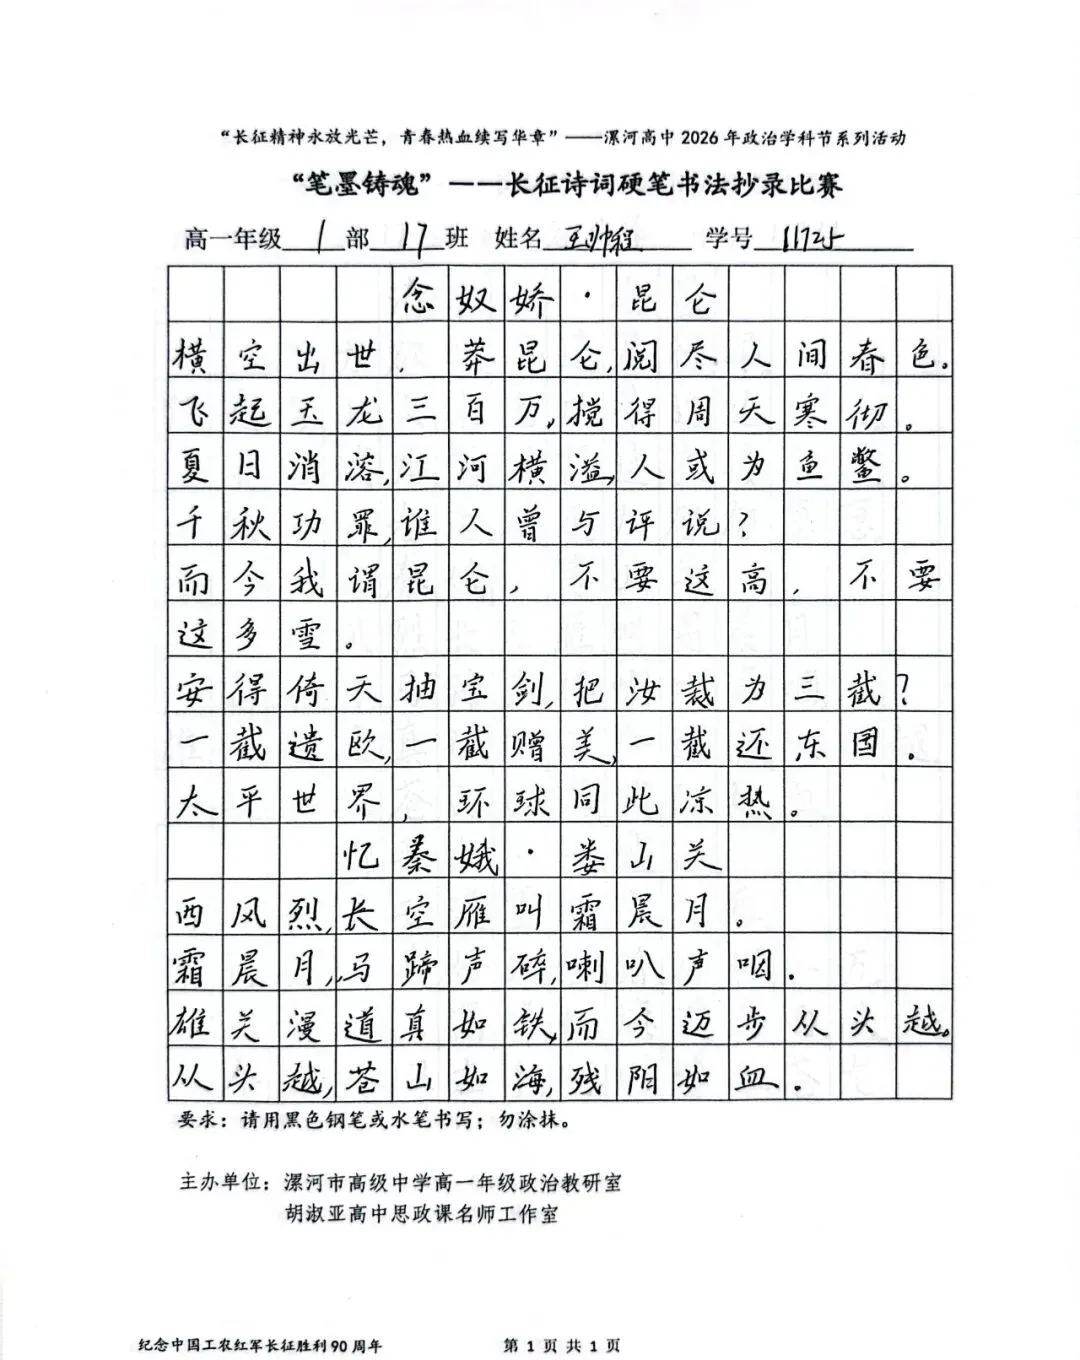 “长征精神永放光芒，青春热血续写华章”——漯河高中2026年政治学科节系列活动
“笔墨铸魂”——长征诗词硬笔书法抄录比赛
高一年级 1 部 17 班 姓名 王帅程 学号 11725
念奴娇·昆仑
横空出世，莽昆仑，阅尽人间春色。
飞起玉龙三百万，搅得周天寒彻。
夏日消溶，江河横溢，人或为鱼鳖。
千秋功罪，谁人曾与评说？
而今我谓昆仑，不要这高，不要
这多雪。
安得倚天抽宝剑，把汝裁为三截？
一截遗欧，一截赠美，一截还东国.
太平世界，环球同此凉热。
忆秦娥·娄山关
西风烈，长空雁叫霜晨月。
霜晨月，马蹄声碎，喇叭声咽.
雄关漫道真如铁，而今迈步从头越。
从头越，苍山如海，残阳如血.
要求：请用黑色钢笔或水笔书写；勿涂抹。
主办单位：漯河市高级中学高一年级政治教研室
胡淑亚高中思政课名师工作室
纪念中国工农红军长征胜利90周年 第 1 页 共 1 页